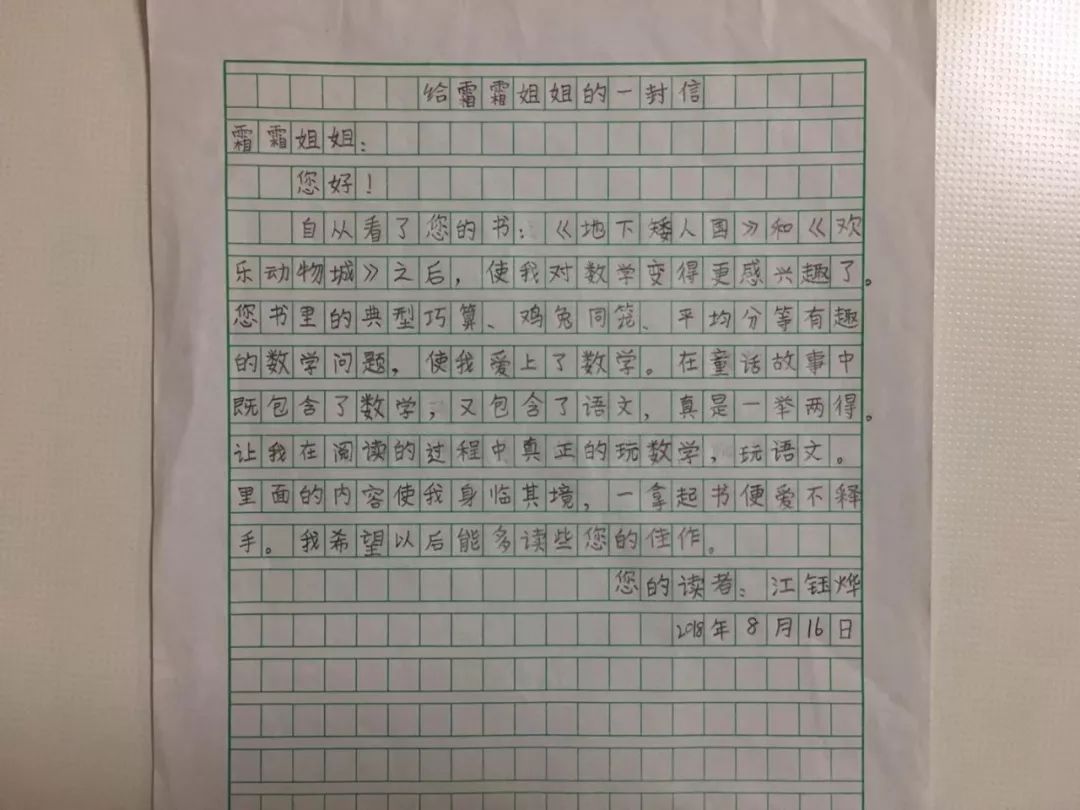 给霜霜姐姐的一封信
霜霜姐姐：
您好！
自从看了您的书：《地下矮人国》和《欢
乐动物城》之后，使我对数学变得更感兴趣了。
您书里的典型巧算、鸡兔同笼、平均分等有趣
的数学问题，使我爱上了数学。在童话故事中
既包含了数学，又包含了语文，真是一举两得。
让我在阅读的过程中真正的玩数学，玩语文。
里面的内容使我身临其境，一拿起书便爱不释
手。我希望以后能多读些您的佳作。
您的读者：江钰烨
2018年8月16日